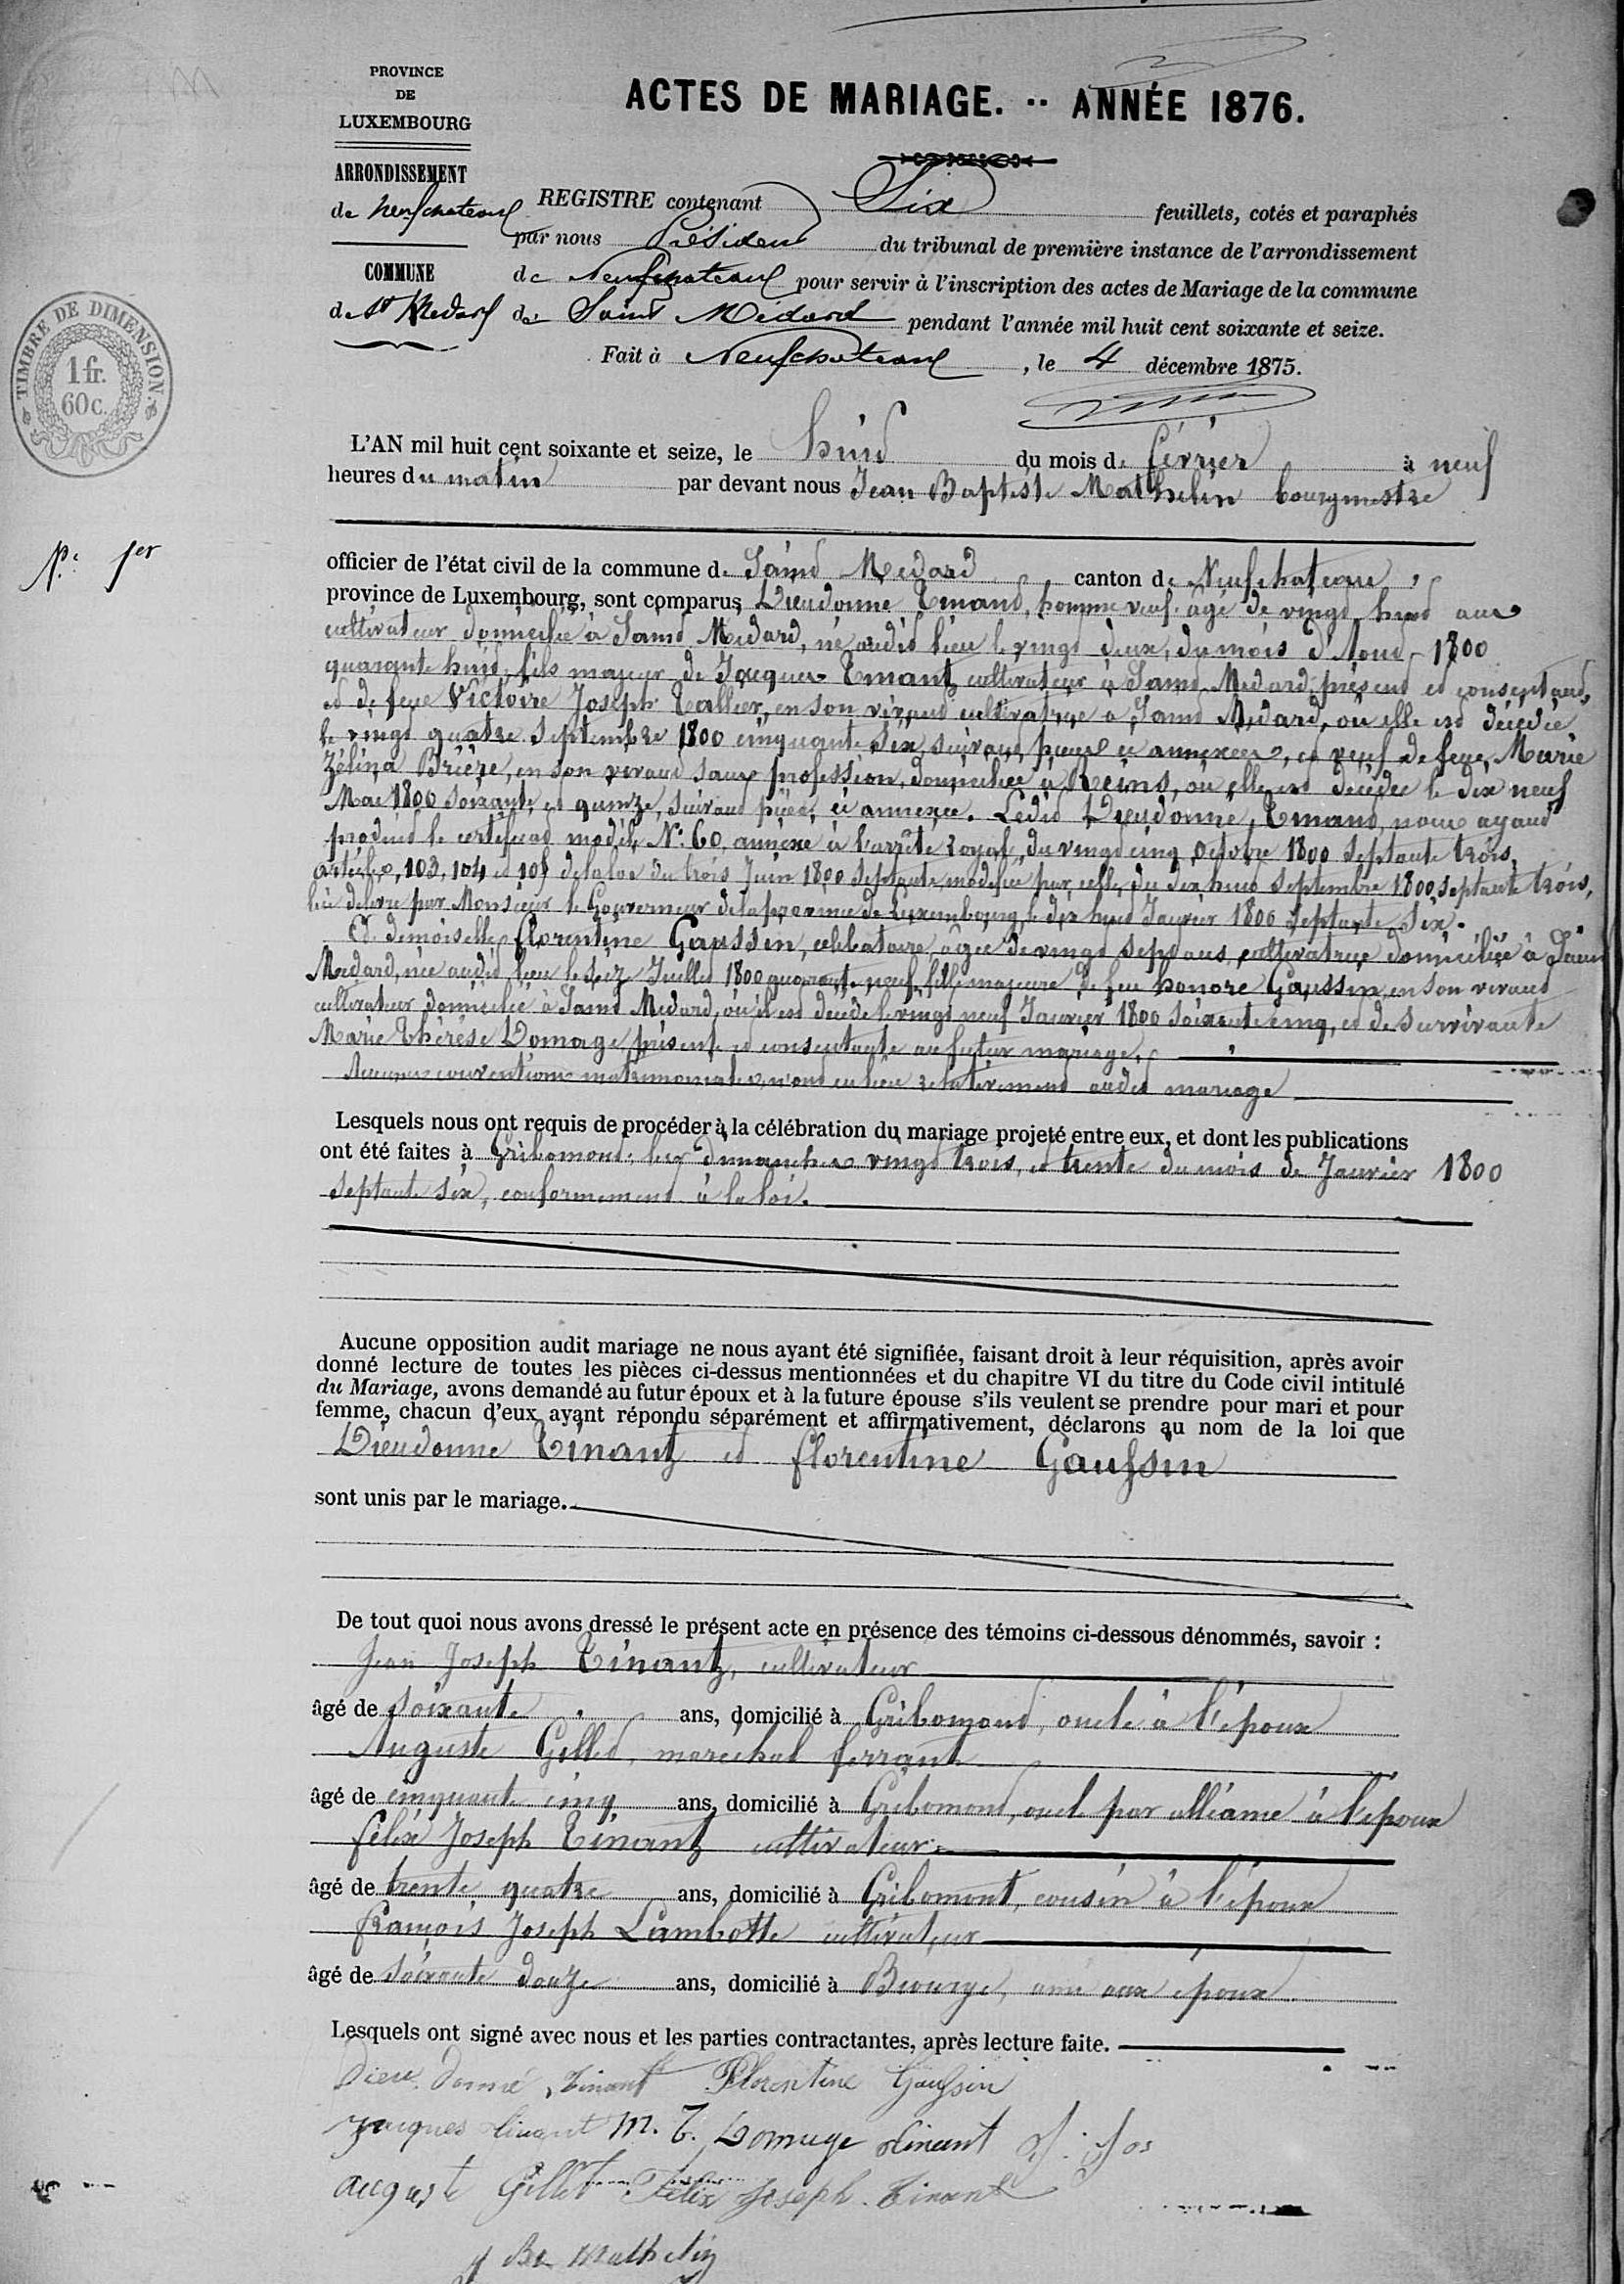 PROVINCE
DE
LUXEMBOURG
ARRONDISSEMENT
de Neufchateau
COMMUNE
de St Medard
ACTES DE MARIAGE. -- ANNÉE 1876.
REGISTRE contenant Six feuillets, cotés et paraphés
par nous Président du tribunal de première instance de l'arrondissement
de Neufchateau pour servir à l'inscription des actes de Mariage de la commune
de Saint Médard pendant l'année mil huit cent soixante et seize.
Fait à Neufchateau, le 4 décembre 1875.
TIMBRE DE DIMENSION.
1 fr.
60 c.
L'AN mil huit cent soixante et seize, le huit du mois de février à neuf
heures du matin par devant nous Jean Baptiste Mathelin bourgmestre
N.º 1er
officier de l'état civil de la commune de Saint Medard canton de Neufchateau,
province de Luxembourg, sont comparus Dieudonné Tinant, homme veuf âgé de vingt huit ans
cultivateur domicilié à Saint Medard, né audit lieu le vingt deux, du mois d'Aout 1800
quarante huit, fils majeur de Jacques Tinant cultivateur à Saint Medard présent et consentant,
et de feue Victoire Joseph Tallier, en son vivant cultivatrice a Saint Medard, où elle est décédée
le vingt quatre Septembre 1800 cinquante six, suivant pièce ci annexée, et veuf de feue Marie
Zélina Brièze, en son vivant sans profession, domiciliée à Reims, où elle est décédée le dix neuf
Mai 1800 soixante et quinze, suivant pièce ci annexée. Ledit Dieudonné Tinant, nous ayant
produit le certificat modèle N.º 60, annexé à l'arrêté royal, du vingt cinq Octobre 1800 septante trois,
articles, 103, 104 et 105 de la loi du trois Juin 1800 Septante modifiée par celle du dix huit Septembre 1800 septante trois,
lui délivré par Monsieur le Gouverneur de la province de Luxembourg, le dix huit Janvier 1800 Septante Six.
Et demoiselle Florentine Gaussin, célibataire, âgée de vingt sept ans, cultivatrice domiciliée à Saint
Medard, née audit lieu le seize Juillet 1800 quarante neuf, fille majeure de feu honoré Gaussin, en son vivant
cultivateur domicilié à Saint Medard, où il est décédé le vingt neuf Janvier 1800 soixante cinq, et de survivante
Marie Thérèse Domage présente et consentante au futur mariage.
Aucunes conventions matrimoniales, n'ont eu lieu relativement audit mariage
Lesquels nous ont requis de procéder à la célébration du mariage projeté entre eux, et dont les publications
ont été faites à Gribomont, les dimanches vingt trois, et trente du mois de Janvier 1800
septante six, conformement à la loi.
Aucune opposition audit mariage ne nous ayant été signifiée, faisant droit à leur réquisition, après avoir
donné lecture de toutes les pièces ci-dessus mentionnées et du chapitre VI du titre du Code civil intitulé
du Mariage, avons demandé au futur époux et à la future épouse s'ils veulent se prendre pour mari et pour
femme, chacun d'eux ayant répondu séparément et affirmativement, déclarons au nom de la loi que
Dieudonné Tinant et florentine Gaussin
sont unis par le mariage.
De tout quoi nous avons dressé le présent acte en présence des témoins ci-dessous dénommés, savoir :
Jean Joseph Tinant, cultivateur
âgé de soixante ans, domicilié à Gribomont, oncle à l'époux
Auguste Gillet, maréchal ferrant
âgé de cinquante cinq ans, domicilié à Gribomont, oncle par alliance à l'époux
félix Joseph Tinant cultivateur
âgé de trente quatre ans, domicilié à Gribomont, cousin à l'époux
françois Joseph Lambotte cultivateur
âgé de soixante douze ans, domicilié à Biourge, ami aux époux
Lesquels ont signé avec nous et les parties contractantes, après lecture faite.
Dieu donné Tinant Florentine Gaussin
Jacques tinant M. T. Domage tinant J: Jos
auguste Gillet Félix Joseph Tinant
J Bte Mathelin